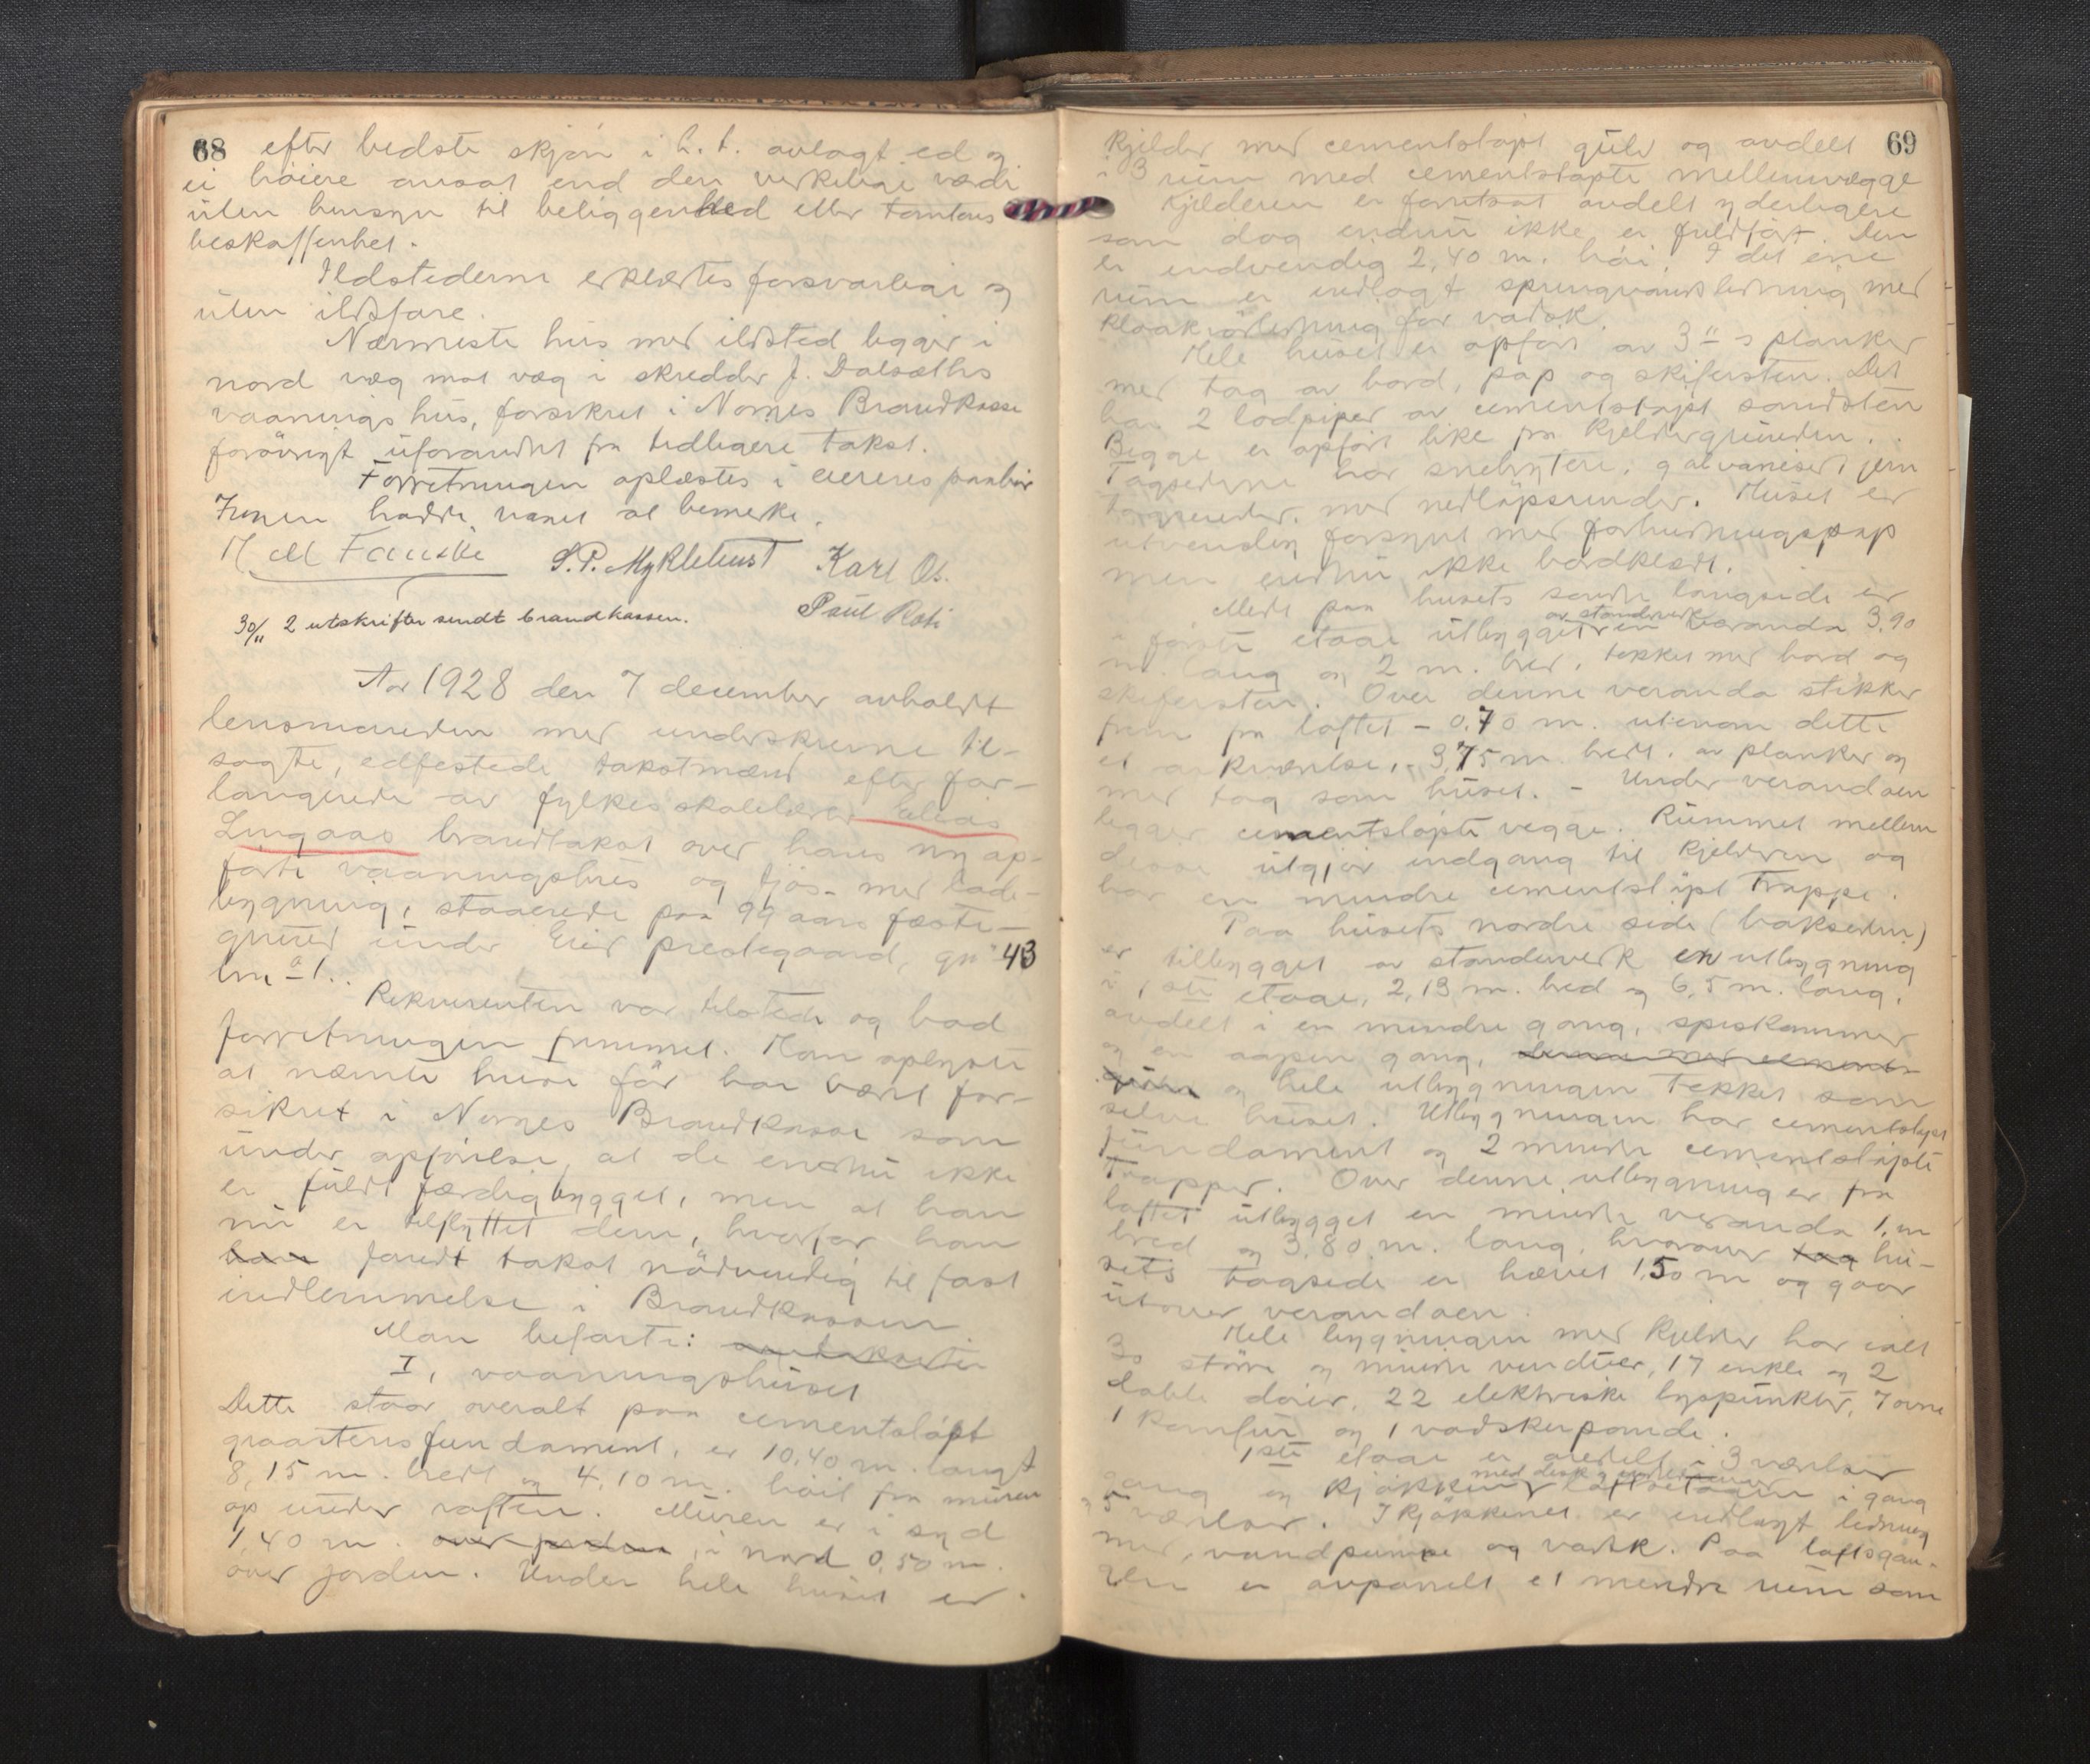 68 efter bedste skjøn i h. t. avlagt ed og
ei høiere ansat end den virkelige værdi
uten hensyn til beliggenhed eller tomtens
beskaffenhet.
Ildstederne erklærtes forsvarlige og
uten ildsfare.
Nærmeste hus med ildsted ligger i
nord væg mot væg i skredder J. Dalsæths
vaanings hus, forsikret i Norges Brandkasse
forøvrigt uforandret fra tidligere takst.
Forretningen oplæstes i eierens paahør
Ingen hadde noget at bemerke.
H M Fauske S. P. Myklebust Karl Os.
Paul Roti
30/11 2 utskrifter sendt brandkassen.
Aar 1928 den 7 december avholdt
lensmanden med underskrevne til-
sagte, edfestede takstmænd efter for-
langende av fylkesskolelærer Elias
Lingaas brandtakst over hans ny op-
førte vaaningshus og fjøs- med lade-
bygning, staaende paa 99 aars fæste-
grund under Eid prestegaard, gn 43
bn. 1.
Rekvirenten var tilstede og bad
forretningen fremmet. Han oplyste
at nævnte huse før har været for-
sikret i Norges Brandkasse som
under opførelse, at de endnu ikke
er fuldt færdigbygget, men at han
nu er tilflyttet dem, hvorfor han
han fandt takst nødvendig til fast
indlemmelse i Brandkassen.
Man befarte:
I, vaaningshuset
Dette staar overalt paa cementstøpt
graastensfundament, er 10,40 m. langt
8,15 m. bredt og 4,10 m. høit fra muren
op under raften. Muren er i syd
1,40 m. over jorden, i nord 0,50 m.
over jorden. Under hele huset er
69
kjelder med cementstøpt gulv og avdelt
i 3 rum med cementstøpte mellemvægge
Kjelderen er forutsat avdelt yderligere
som dog endnu ikke er fuldført. Den
er indvendig 2,40 m. høi. I det ene
rum er indlagt springvandsledning med
kloakrørledning for vadsk.
Hele huset er opført av 3" s planker
med tag av bord, pap og skifersten. Det
har 2 lodpiper av cementstøpt sandsten
Begge er opført like fra kjeldergrunden.
Tagsiderne har snebrytere, galvanisert jern
tagrender med nedløpsrender. Huset er
utvendig forsynt med forhudningspap
men endnu ikke bordklædt.
Midt paa husets søndre langside er
av standerverk
i første etage utbygget en veranda 3.90
m. lang og 2 m. bred, tækket med bord og
skifersten. Over denne veranda stikker
frem fra loftet - 0.70 m. utenom dette
et arkværelse, - 3,75 m. bredt. av planker og
med tag som huset. - Under verandaen
ligger cementstøpte vegge. Rummet mellem
disse utgjør indgang til kjelderen og
har en mindre cementstøpt trappe.
Paa husets nordre side (baksiden)
er tilbygget av standerverk en utbygning
i 1ste etage, 2,13 m. bred og 6,5 m. lang,
avdelt i en mindre gang, spiskammer
og en aapen gang, denne med cement-
gulv og hele utbygningen tækket som
selve huset. Utbygningen har cementstøpt
fundament og 2 mindre cementstøpte
trapper. Over denne utbygning er fra
loftet utbygget en mindre veranda 1, m
bred og 3,80 m. lang, hvorover tag hu-
sets tagside er hævet 1,50 m og gaar
utover verandaen.
Hele bygningen med kjelder har ialt
30 større og mindre vinduer, 17 enkle og 2
doble dører, 22 elektriske lyspunkter, 7 ovne
1 komfur og 1 vadskerpande.
1ste etage er avdelt i 3 værelser
gang og kjøkken, loftsetagen i gang
og 5 værelser. I kjøkkenet er indlagt ledning
med vandpumpe og vadsk. Paa loftsgan-
gen er avpanelt et mindre rum som